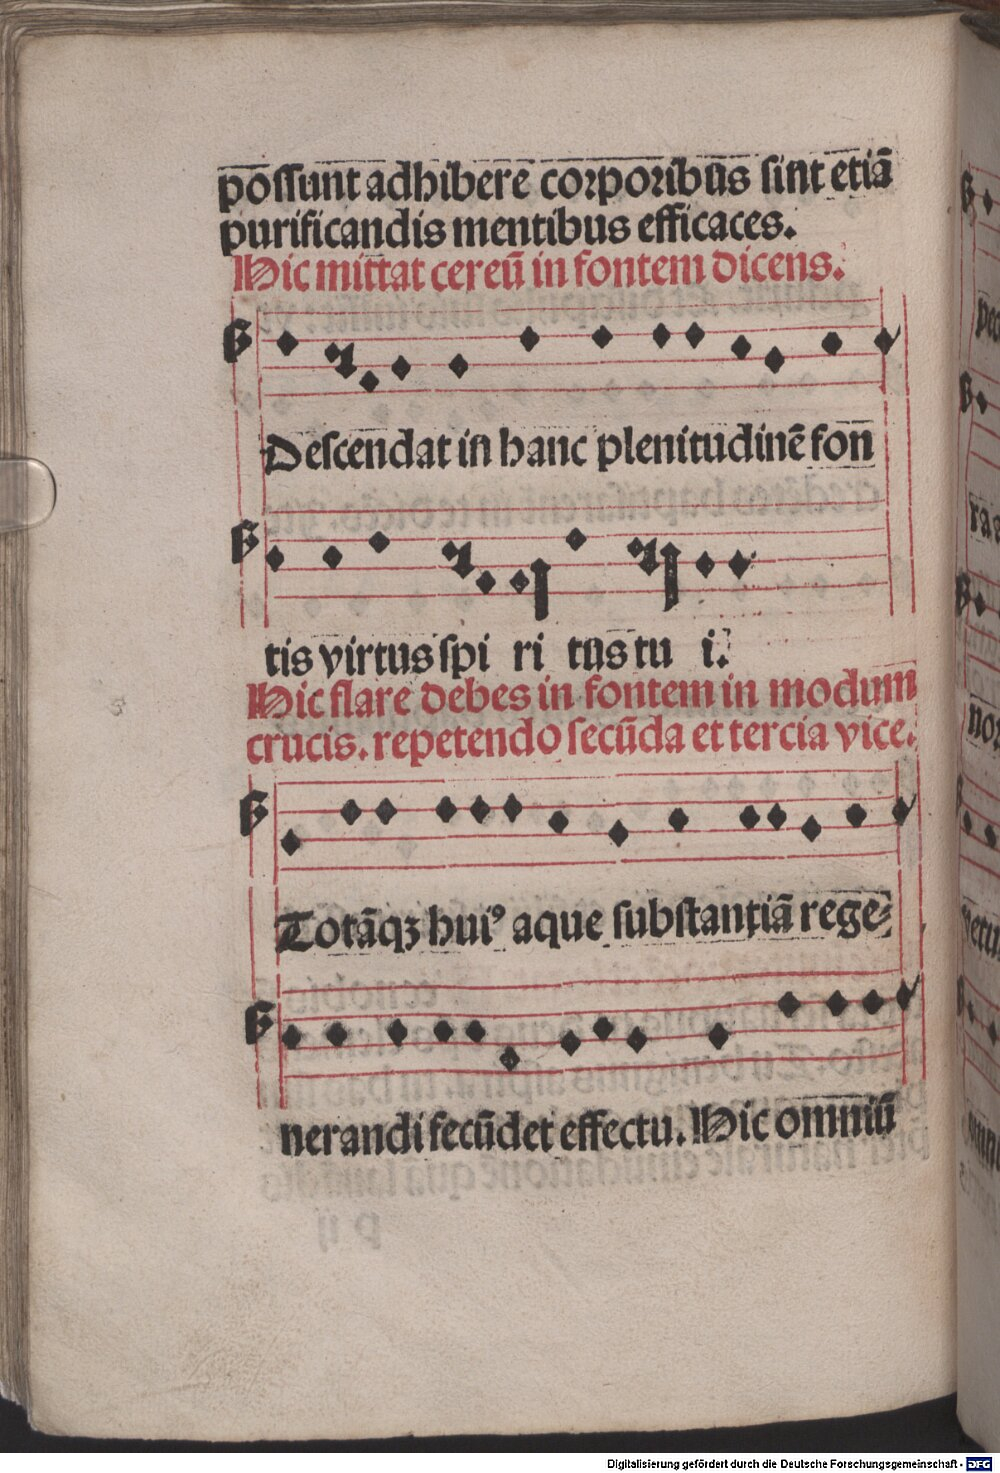 possunt adhibere corporibus sint etiā
purificandis mentibus efficaces.
Hic mittat cereū in fontem dicens.
Descendat in hanc plenitudinē fon
tis virtus spi ri tus tu i.
Hic flare debes in fontem in modum
crucis. repetendo secūda et tercia vice.
Totāqꝫ huiꝰ aque substantiā rege⸗
nerandi fecūdet effectu. Hic omniū
Digitalisierung gefördert durch die Deutsche Forschungsgemeinschaft - DFG